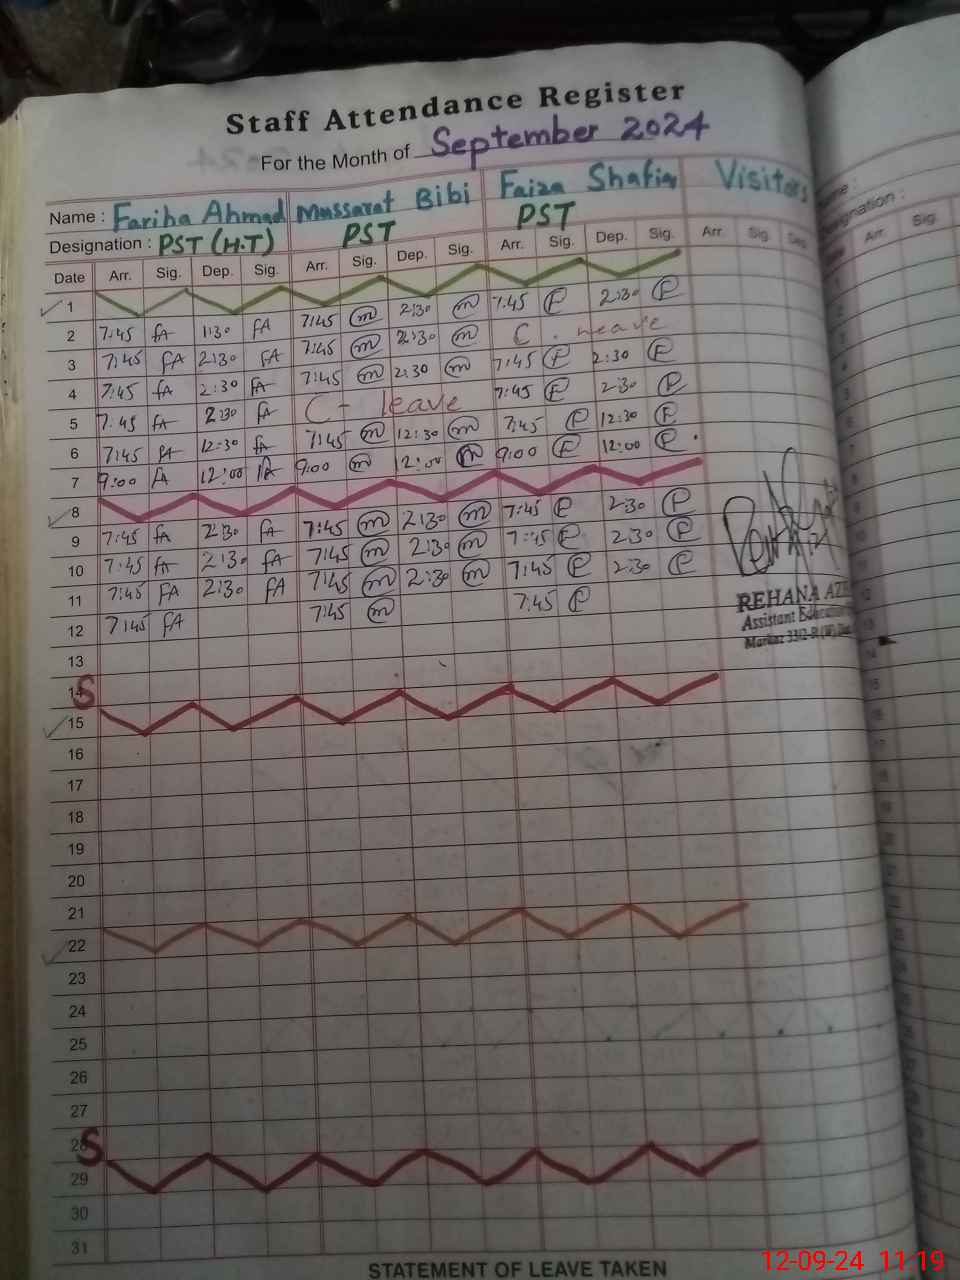 Staff Attendance Register
For the Month of September 2024
Name : Fariha Ahmad Mussarat Bibi Faiza Shafiq Visitors
Designation : PST (H.T) PST PST
Date Arr. Sig. Dep. Sig. Arr. Sig. Dep. Sig. Arr. Sig. Dep. Sig. Arr. Sig. Dep.
1
2 7:45 fA 1:30 fA 7:45 m 2:30 m 7:45 F 2:30 F
3 7:45 fA 2:30 fA 7:45 m 2:30 m C. leave
4 7:45 fA 2:30 fA 7:45 m 2:30 m 7:45 F 2:30 F
5 7:45 fA 2:30 fA C- leave 7:45 F 2:30 F
6 7:45 fA 12:30 fA 7:45 m 12:30 m 7:45 F 12:30 F
7 9:00 fA 12:00 fA 9:00 m 12:00 m 9:00 F 12:00 F
8
9 7:45 fA 2:30 fA 7:45 m 2:30 m 7:45 F 2:30 F
10 7:45 fA 2:30 fA 7:45 m 2:30 m 7:45 F 2:30 F
11 7:45 fA 2:30 fA 7:45 m 2:30 m 7:45 F 2:30 F
12 7:45 fA 7:45 m 7:45 F
REHANA
Assistant
Markaz
13
14 S
15
16
17
18
19
20
21
22
23
24
25
26
27
28 S
29
30
31
STATEMENT OF LEAVE TAKEN
12-09-24 11:19